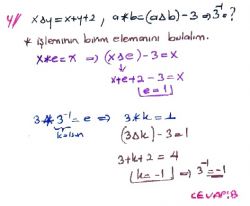 4/ x∆y=x+y+2 , a*b=(a∆b)-3 ⇒ 3⁻¹=?
* işleminin birim elemanını bulalım.
x*e=x ⇒ (x∆e)-3=x
x+e+2-3=x
e=1
3*3⁻¹=e ⇒ 3*k=1
k olsun
(3∆k)-3=1
3+k+2=4
k=-1 ⇒ 3⁻¹=-1
CEVAP:B